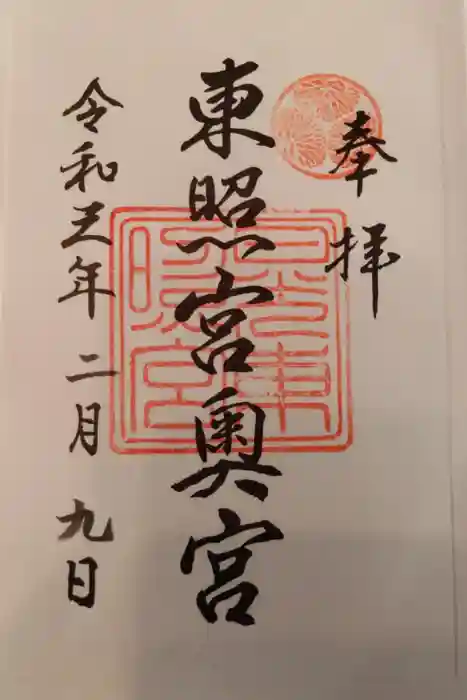 奉拝
東照宮奥宮
令和三年二月九日
日光東照宮